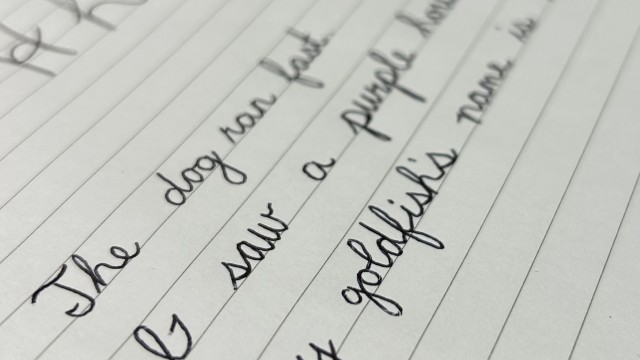 The dog ran fast.
I saw a purple
goldfish's name is